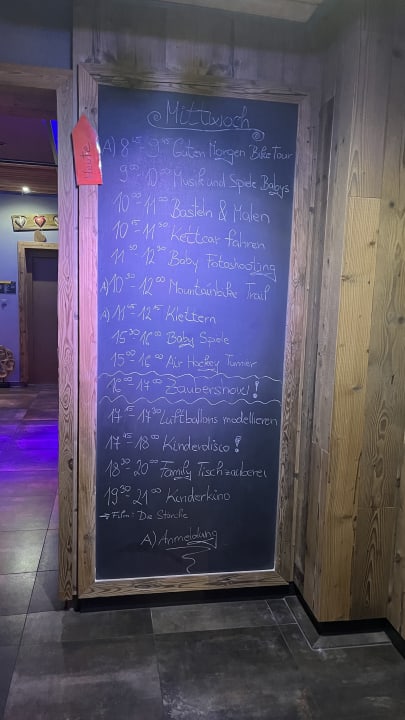 Mittwoch
Heute
A) 8⁴⁵-9⁴⁵ Guten Morgen Bike Tour
9⁰⁰-10⁰⁰ Musik und Spiele Babys
10⁰⁰-11⁰⁰ Basteln & Malen
10⁴⁵-11⁴⁵ Kettcar fahren
11³⁰-12³⁰ Baby Fotoshooting
A) 10³⁰-12⁰⁰ Mountainbike Trail
A) 11⁴⁵-12⁴⁵ Klettern
15³⁰-16⁰⁰ Baby Spiele
15⁰⁰-16⁰⁰ Air Hockey Turnier
16⁰⁰-17⁰⁰ Zaubershow!
17¹⁵-17³⁰ Luftballons modellieren
17⁴⁵-18⁰⁰ Kinderdisco!
18³⁰-20⁰⁰ Family Tischzauberei
19³⁰-21⁰⁰ Kinderkino
→ Film: Die Störche
A) Anmeldung